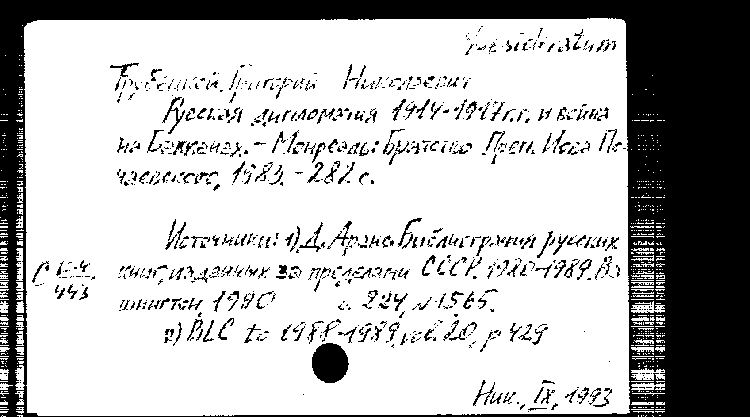 Desideratum
Трубецкой, Григорий Николаевич
Русская дипломатия 1914-1917 г.г. и война
на Балканах. - Монреаль: Братство Преп. Иова По-
чаевского, 1983. - 282 с.
Источники: 1) Д. Арано Библиография русских
книг, изданных за пределами СССР. 1920-1989. Ва
шингтон, 1990 с. 224, № 1565.
2) BLC to 1988-1989, vol. 20, p 429
С
443
Ник., IX, 1993